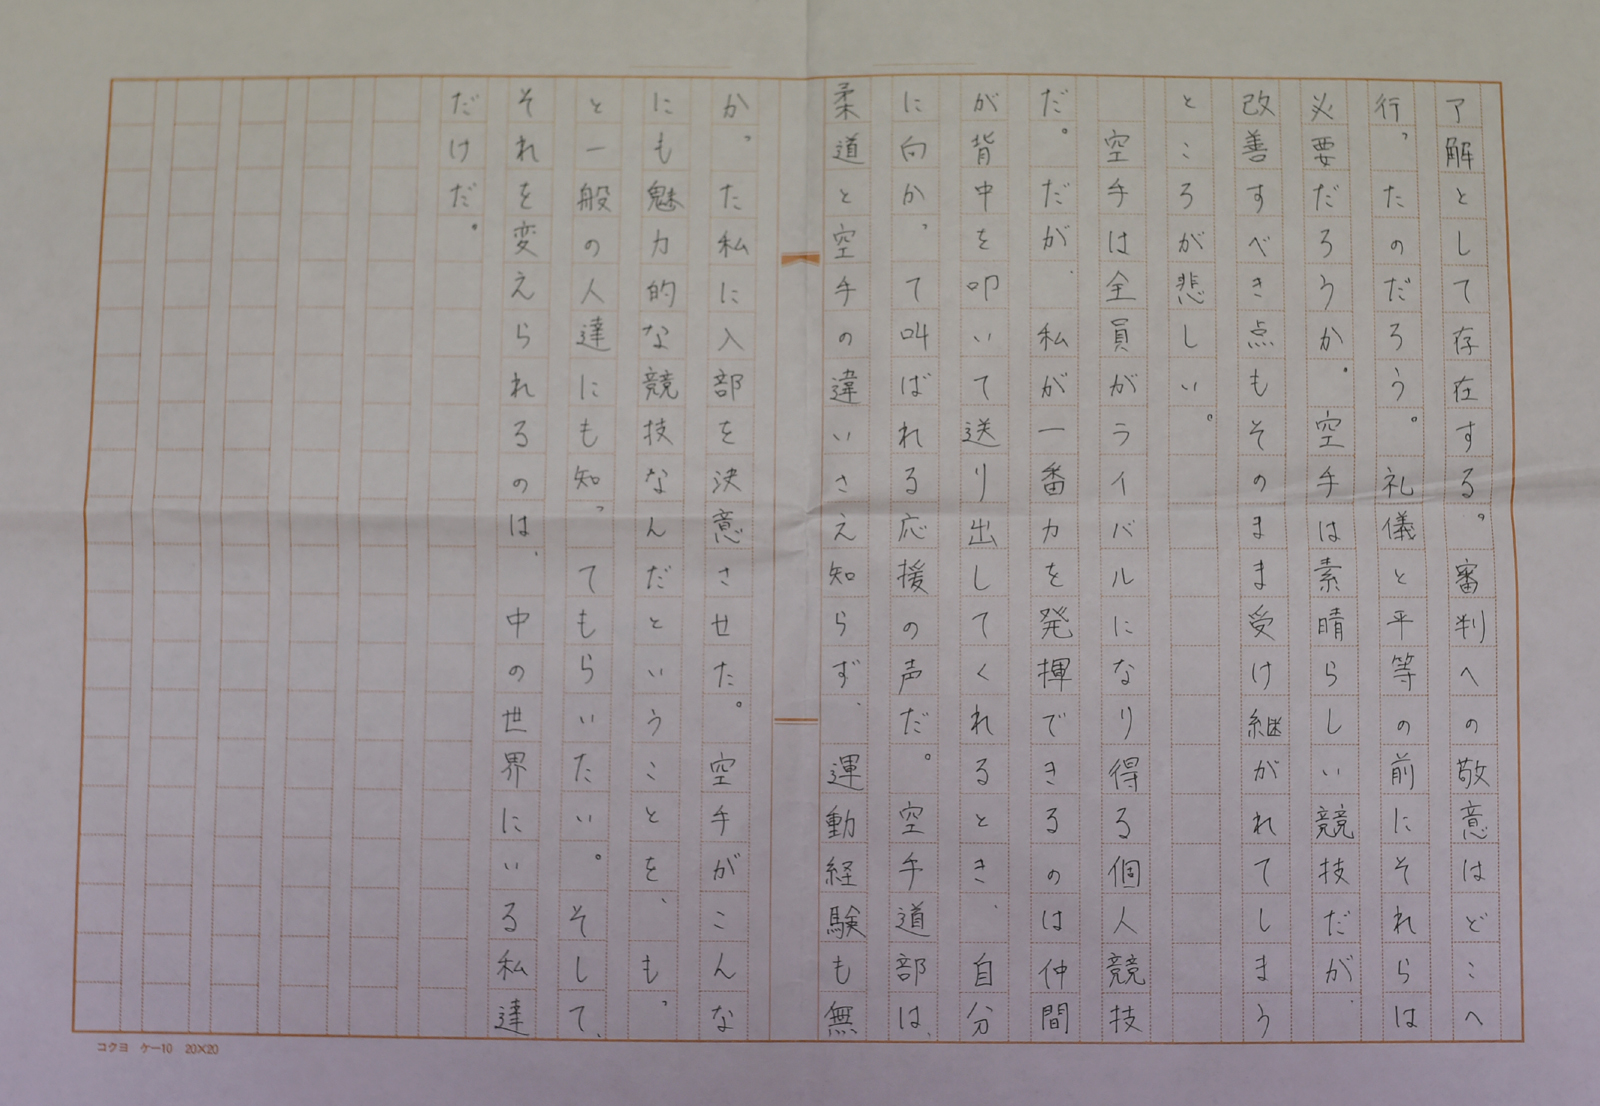 了解として存在する。審判への敬意はどこへ
行ったのだろう。礼儀と平等の前にそれらは
必要だろうか。空手は素晴らしい競技だが、
改善すべき点もそのまま受け継がれてしまう
ところが悲しい。
空手は全員がライバルになり得る個人競技
だ。だが、私が一番力を発揮できるのは仲間
が背中を叩いて送り出してくれるとき、自分
に向かって叫ばれる応援の声だ。空手道部は、
柔道と空手の違いさえ知らず、運動経験も無
かった私に入部を決意させた。空手がこんな
にも魅力的な競技なんだということを、もっ
と一般の人達にも知ってもらいたい。そして、
それを変えられるのは、中の世界にいる私達
だけだ。
コクヨ ケー10 20×20